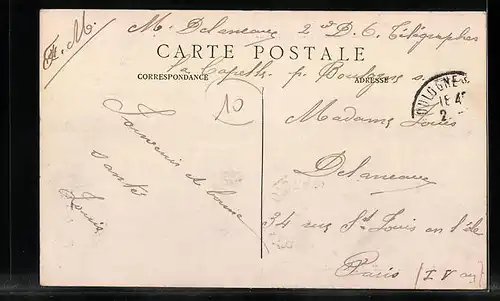 F. M.
M. Delaneau 2e D. C. Télégraphes
CARTE POSTALE
La Capelle p. Boulogne s.
CORRESPONDANCE
ADRESSE
10
BOULOGNE-S.
18 4
2
Souvenir et bonne
santé
Louis
Madame Louis
Delaneau
34 rue St Louis en l'ile
Paris (IV arr)